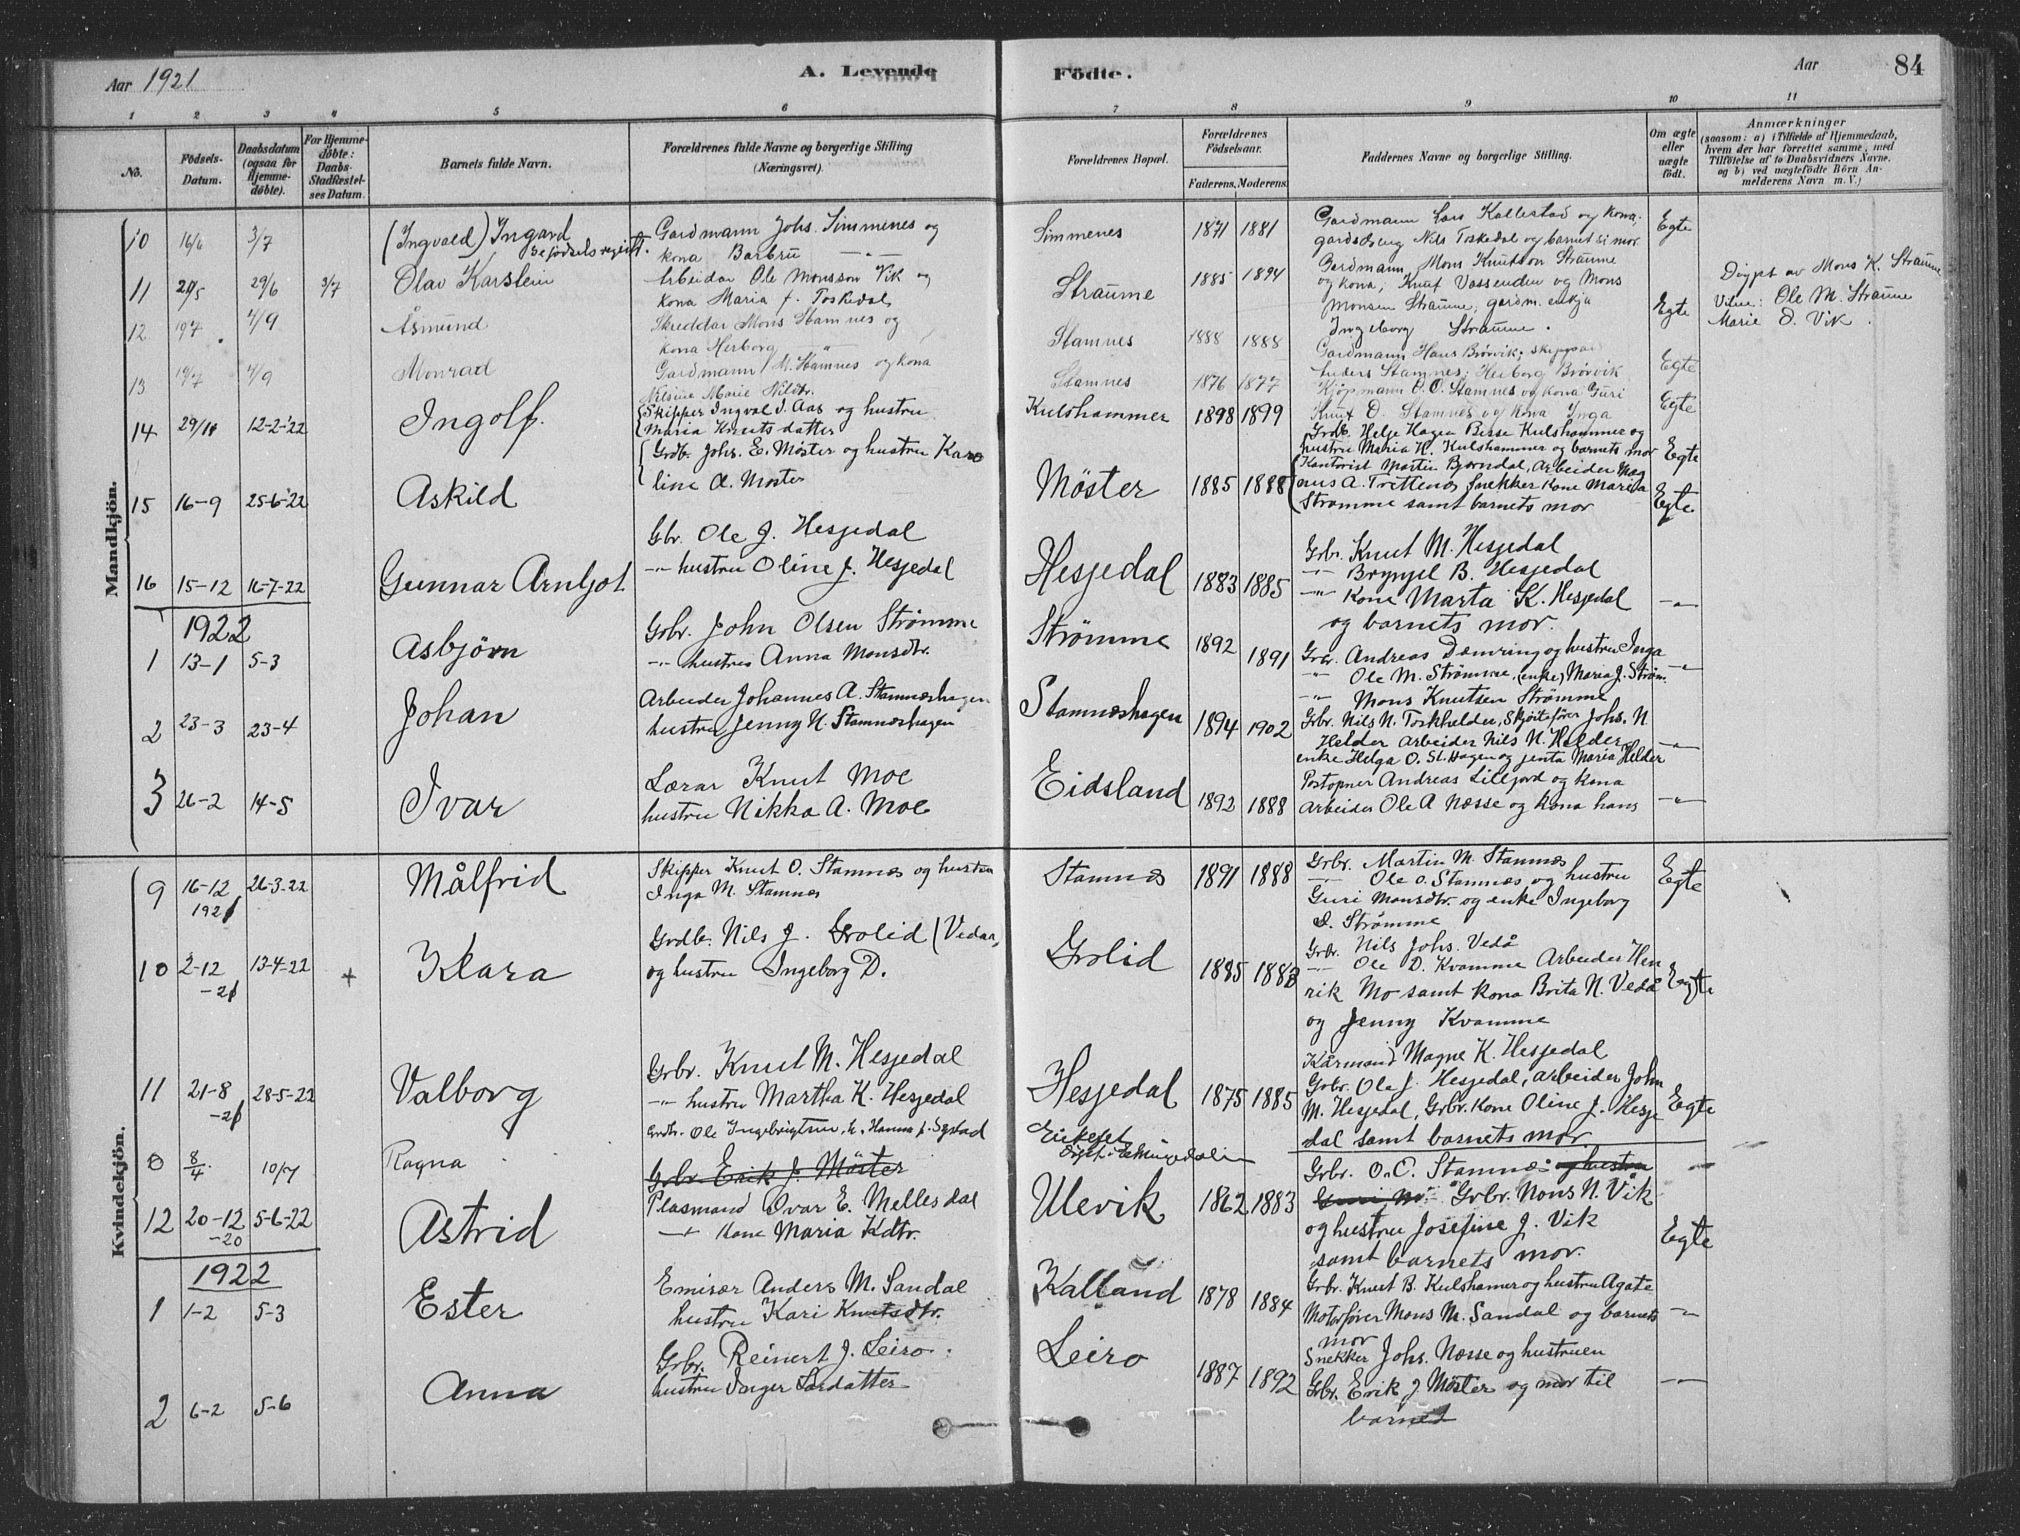 Aar 1921
A. Levende
Födte.
Aar
84
1 2 3 4 5 6 7 8 9 10 11
No.
Födsels-
Datum.
Daabsdatum
(ogsaa for
Hjemme-
döbte).
For Hjemme-
döbte:
Daabs-
Stadfæstel-
ses Datum.
Barnets fulde Navn.
Forældrenes fulde Navne og borgerlige Stilling
(Næringsvei).
Forældrenes Bopæl.
Forældrenes
Födselsaar.
Faderens. Moderens.
Faddernes Navne og borgerlige Stilling.
Om ægte
eller
uægte
födt.
Anmærkninger
(saasom: a) i Tilfælde af Hjemmedaab,
hvem der har forrettet samme, med
Tilföielse af to Daabsvidners Navne.
og b) ved uægtefödte Börn An-
melderens Navn m. V.)
Mandkjön.
10 16/6 3/7 (Ingvald) Ingard
se fødselsregist.
Gardmann Johs. Simmenes og
kona Barbru
Simmenes 1871 1881
Gardmann Lars Kallestad og kona,
Nils Toskedal og barnet si mor
Egte
11 29/5 29/6 3/7 Olav Karstein
Arbeidar Ole Monsson Vik og
kona Maria f. Toskedal
Straume 1885 1894
Gardmann Mons Knutson Straume
og kona, Knut Vassenden og Mons
Monsen Straume, gardm. enkja
Ingeborg Straume.
Egte
Døypt av Mons K. Straume
Vitne: Ole M. Straume
Marie O. Vik.
12 19/7 4/9 Åsmund
Skreddar Mons Stamnes og
kona Herborg "
Stamnes 1888 1888
Gardmann Hans Brørvik, skippar
Anders Stamnes; Herborg Brørvik
Egte
13 19/7 4/9 Monrad
Gardmann M. Stamnes og kona
Nilsine Marie Nilsdtr.
Stamnes 1876 1877
Kjøpmann O. O. Stamnes og kona Guri
Knut O. Stamnes og kona Inga
Egte
14 29/11 12-2-22 Ingolf
Skipper Ingval I. Aas og hustru
Maria Knutsdatter
Kulshammer 1898 1899
Grdb. Helje Hagen Besse Kulshammer og
hustru Maria H. Kulshammer og barnets mor
Egte
15 16-9 25-6-22 Askild
Grdb. Johs. E. Møster og hustru Karo
line A. Møster
Møster 1885 1888
Kontorist Martin Bjørndal, Arbeider Mag
nus A. Trettenes Snekker Kone Marita
Strømme samt barnets mor
Egte
16 15-12 16-7-22 Gunnar Arnljot
Gbr. Ole J. Hesjedal
-"- hustru Oline J. Hesjedal
Hesjedal 1883 1885
Grbr. Knut M. Hesjedal
-"- Brynjel B. Hesjedal
-"- Kone Marta K. Hesjedal
og barnets mor.
-"-
1922
1 13-1 5-3 Asbjørn
Grbr. John Olsen Strømme
-"- hustru Anna Monsdtr.
Strømme 1892 1891
Grbr. Andreas Dæmring og hustru Inga
-"- Ole M. Strømme, (enke) Maria J. Strøm.
-"- Mons Knutsen Strømme
-"-
2 23-3 23-4 Johan
Arbeider Johannes A. Stamneshagen
hustru Jenny N. Stamneshagen
Stamneshagen 1894 1902
Grbr. Nils N. Toskhelder, Skjøitefører Johs. N.
Helder Arbeider Nils N. Helder
enke Helga O. St. Hagen og jenta Maria Helder
-"-
3 26-2 14-5 Ivar
Lærar Knut Moe
hustru Nikka A. Moe
Eidsland 1892 1888
Postopner Andreas Lilljord og kona
Arbeider Ole A Næsse og kona hans
-"-
Kvindekjön.
9 16-12 1921 26-3-22 Målfrid
Skipper Knut O. Stamnes og hustru
Inga M. Stamnes
Stamnes 1891 1888
Grbr. Martin M. Stamnes
-"- Ole O. Stamnes og hustru
Guri Monsdtr. og enke Ingeborg
I. Strømme
Egte
10 2-12 -21 13-4-22 + Klara
Grdb. Nils J. Grolid (Vedaa,
og hustru Ingeborg D.
Grolid 1885 1883
Grbr. Nils Johs. Vedå
-"- Ole D. Kvamme Arbeider Hen
rik Mo samt kona Brita N. Vedå
og Jenny Kvamme
Egte
11 21-8 -21 28-5-22 Valborg
Grbr. Knut M. Hesjedal
-"- hustru Martha K. Hesjedal
Hesjedal 1875 1885
Kårmand Magne K. Hesjedal
Grbr. Ole J. Hesjedal, Arbeider John
M. Hesjedal, Grbr. kone Oline J. Hesje
dal samt barnets mor
Egte
8 8/4 10/7 Ragna
Grdbr. Ole Ingebrigtsen, h. Hanna f.
-"-
12 20-12 -20 5-6-22 Astrid
Grbr. Erik J. Møster
Plasmand Ivar E. Mellesdal
-"- Kone Maria Kdtr.
Ulevik 1862 1883
Grbr. O. C. Stamnes og hustru
Guri M. Grbr. Mons N. Vik
og hustru Josefine J. Vik
samt barnets mor.
Egte
1922
1 1-2 5-3 Ester
Emisær Anders M. Sandal
hustru Kari Knutsdtr.
Kalland 1878 1884
Grbr. Knut B. Kulshamer og hustru Agate
Motorfører Mons M. Sandal og barnets
mor
-"-
2 6-2 5-6 Anna
Grbr. Reinert J. Leiro
hustru Inger Larsdatter
Leiro 1887 1892
Snekker Johs. Næsse og hustruen
Grbr. Erik J Møster og mor til
barnet
-"-